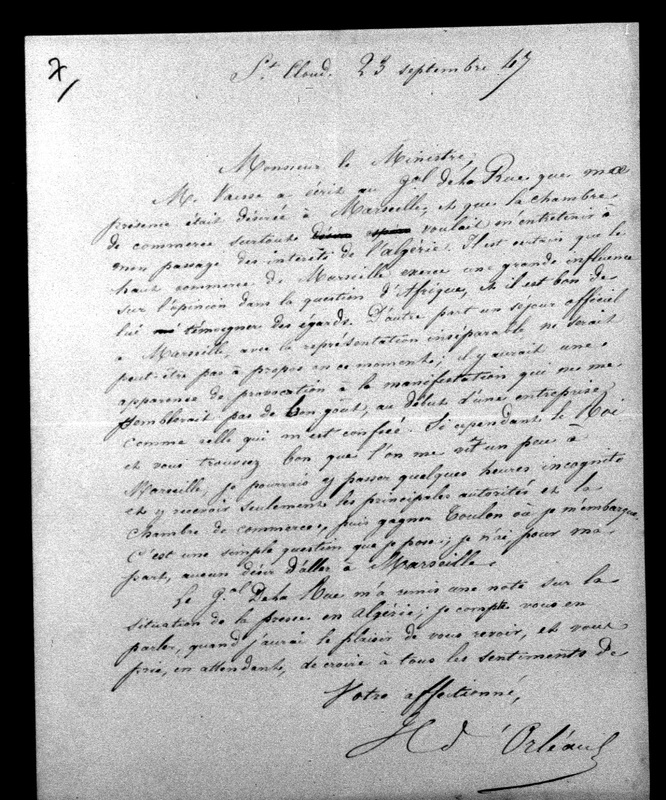 St Cloud. 23 septembre 47
Monsieur le Ministre,
M. Vaisse a écrit au gal de la Rue que ma
présence était désirée à Marseille, et que la chambre
de commerce surtout voulait m'entretenir à
mon passage des intérêts de l'algérie. Il est certain que le
haut commerce de Marseille exerce une grande influence
sur l'opinion dans la question d'Afrique, et il est bon de
lui témoigner des égards. D'autre part un séjour officiel
à Marseille, avec la représentation inséparable ne serait
peut-être pas à propos en ce moment; il y aurait une
apparence de provocation à la manifestation qui ne me
semblerait pas de bon goût, au début d'une entreprise
comme celle qui m'est confiée. Si cependant le Roi
et vous trouviez bon que l'on me vît un peu à
Marseille, je pourrais y passer quelques heures incognito
et y recevoir seulement les principales autorités et la
chambre de commerce, puis gagner Toulon où je m'embarque.
C'est une simple question que je pose; je n'ai pour ma
part, aucun désir d'aller à Marseille.
Le gal De la Rue m'a remis une note sur la
situation de la presse en algérie; je compte vous en
parler, quand j'aurai le plaisir de vous revoir, et vous
prie, en attendant, de croire à tous les sentiments de
Votre affectionné,
H d'Orléans